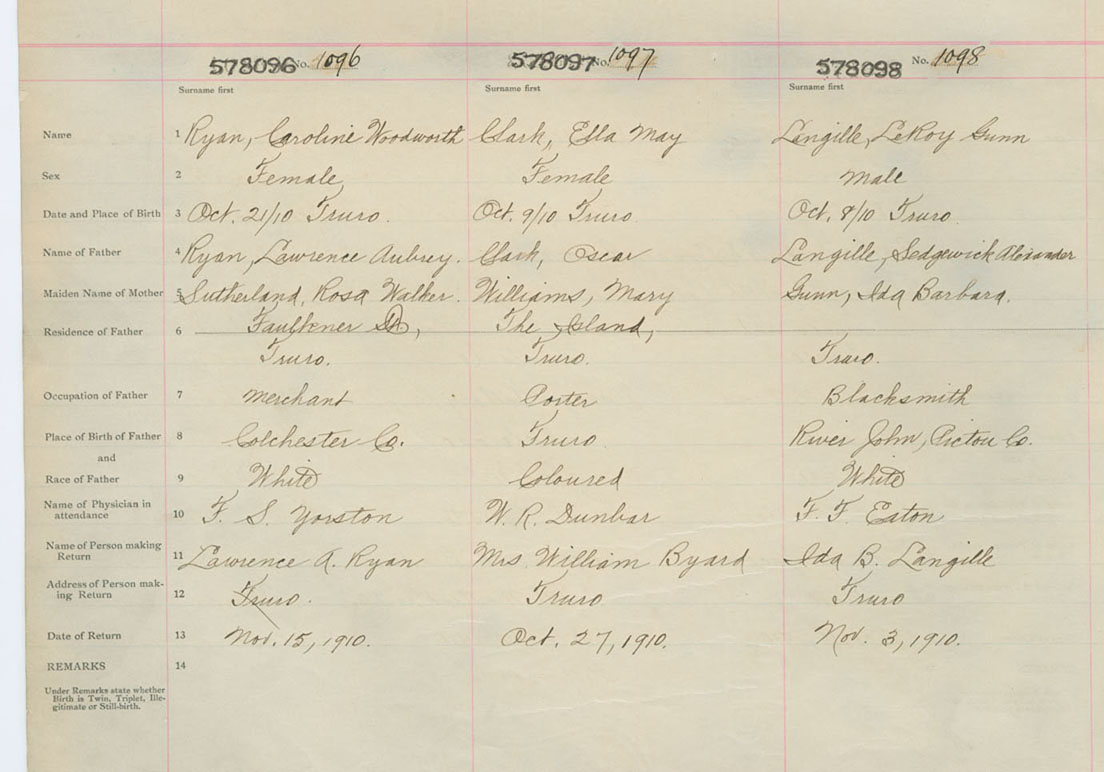 578096 No. 1096 578097 No. 1097 578098 No. 1098
Surname first Surname first Surname first
Name 1 Ryan, Caroline Woodworth Clark, Ella May Langille, LeRoy Gunn
Sex 2 Female, Female Male
Date and Place of Birth 3 Oct. 21/10 Truro. Oct. 9/10 Truro. Oct. 8/10 Truro.
Name of Father 4 Ryan, Lawrence Aubrey. Clark, Oscar Langille, Sedgewick Alexander
Maiden Name of Mother 5 Sutherland, Rosa Walker. Williams, Mary Gunn, Ida Barbara.
Residence of Father 6 Faulkner St, The Island,
Truro. Truro. Truro.
Occupation of Father 7 Merchant Porter Blacksmith
Place of Birth of Father 8 Colchester Co. Truro. River John, Pictou Co.
and
Race of Father 9 White Coloured White
Name of Physician in
attendance 10 F. S. Yorston W. R. Dunbar F. F. Eaton
Name of Person making
Return 11 Lawrence A. Ryan Mrs. William Byard Ida B. Langille
Address of Person mak-
ing Return 12 Truro. Truro Truro
Date of Return 13 Nov. 15, 1910. Oct. 27, 1910. Nov. 3, 1910.
REMARKS 14
Under Remarks state whether
Birth is Twin, Triplet, Ille-
gitimate or Still-birth.